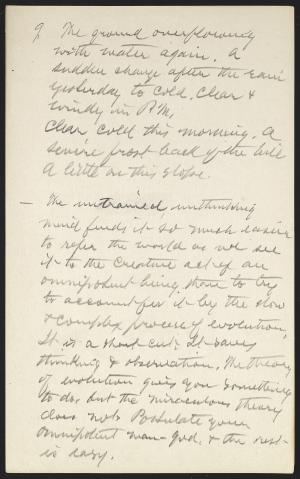 9 The ground overflowing
with water again. A
sudden change after the rain
yesterday to cold. Clear &
windy in P.M.
Clear cold this morning. A
severe frost back of the hill
A little on this slope.
— The untrained, unthinking
mind finds it so much easier
to refer the world as we see
it to the creative act of an
omnipotent being, than to try
to account for it by the slow
& complex process of evolution.
It is a short cut; it saves
thinking & observation. The theory
of evolution gives you something
to do, but the miraculous theory
does not. Postulate your
omnipotent man-god, & the rest
is easy.